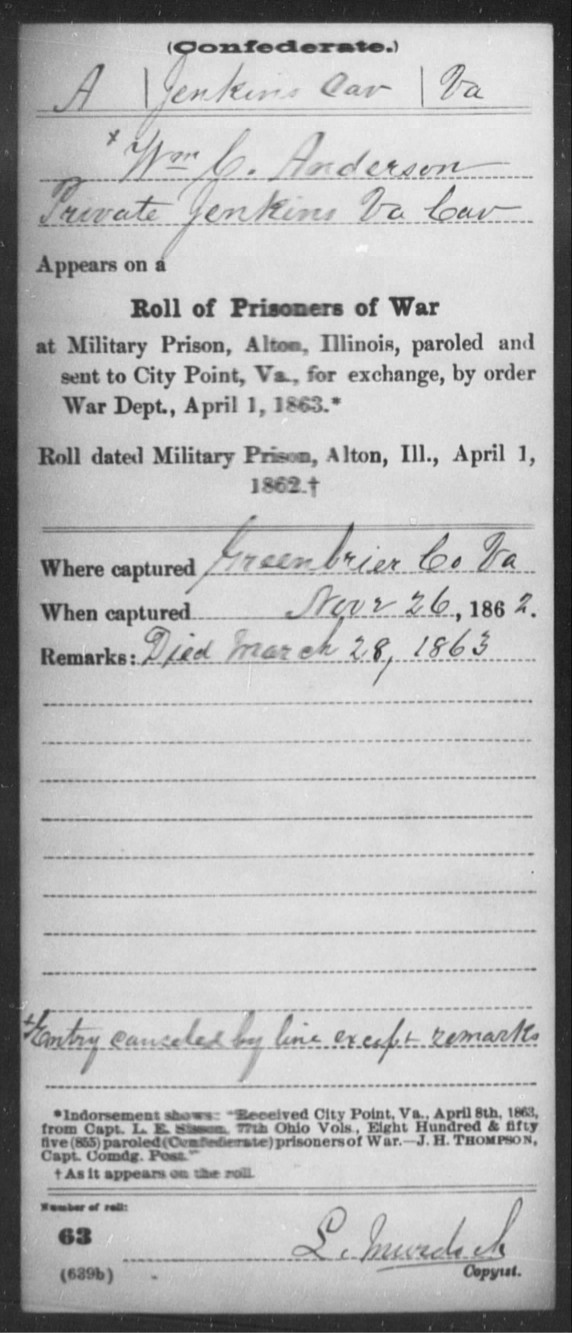 (Confederate.)
A | Jenkins Cav | Va
* Wm C. Anderson
Private Jenkins Va Cav
Appears on a
Roll of Prisoners of War
at Military Prison, Alton, Illinois, paroled and
sent to City Point, Va., for exchange, by order
War Dept., April 1, 1863.*
Roll dated Military Prison, Alton, Ill., April 1,
1862.†
Where captured Greenbrier Co Va
When captured Novr 26, 1862.
Remarks: Died March 28, 1863
*Entry canceled by line except remarks
*Indorsement shows: "Received City Point, Va., April 8th, 1863,
from Capt. L. E. Sisson, 77th Ohio Vols., Eight Hundred & fifty
five (855) paroled (Confederate) prisoners of War.—J. H. THOMPSON,
Capt. Comdg. Post."
† As it appears on the roll.
Number of roll:
63
L. Murdock
(639b)
Copyist.